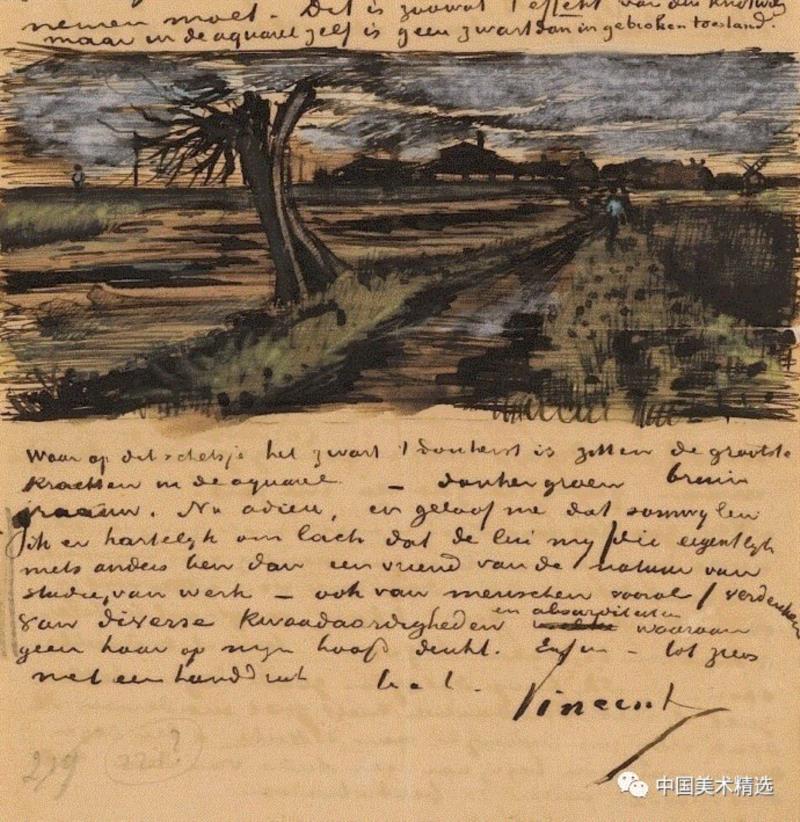 nemen moet. Dit is zoowat 't effekt van den knotwilg
maar in de aquarel zelf is geen zwart dan in gebroken toestand.
Waar op dit schetsje het zwart 't donkerst is zitten de grootste
krachten in de aquarel — donkergroen bruin
graauw. Nu adieu, en geloof me dat somwylen
ik er hartelyk om lach dat de lui my die eigentlyk
niets anders ben dan een vriend van de natuur van
studie, van werk — ook van menschen vooral / verdenken
van diverse kwaadaardigheden en absurditeiten waaraan
geen haar op myn hoofd denkt. Enfin — tot ziens
met een handdruk t. à t.
Vincent
279
中国美术精选